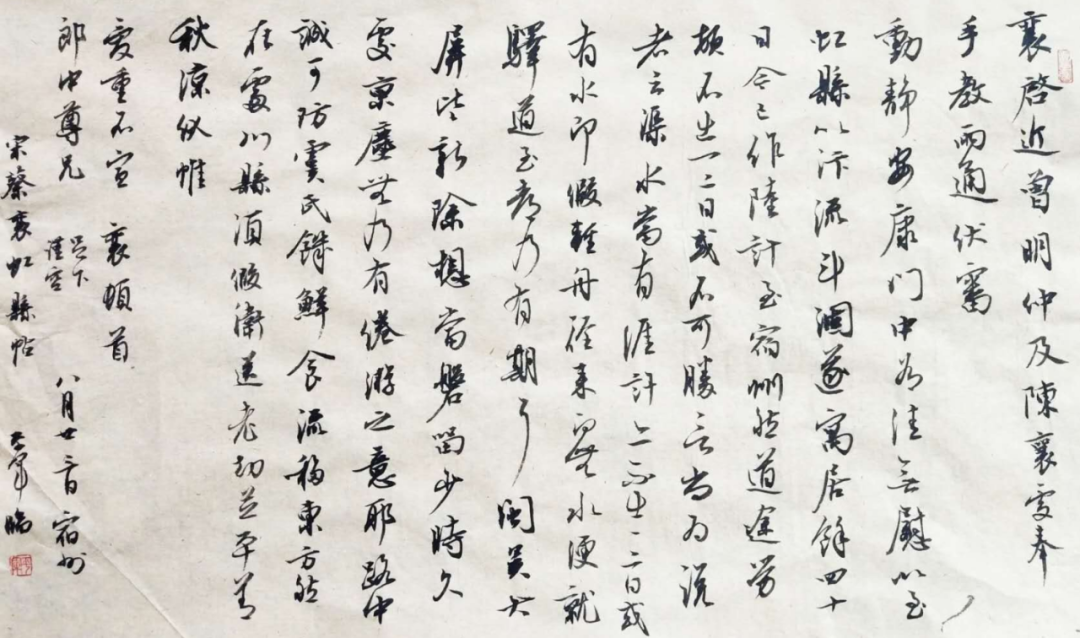 襄啓近曾明仲及陳襄處奉
手教兩通伏審
動靜安康門中各佳無慰以至
虹縣以汴流斗涸遂寓居餘四十
日今已作陸計至宿州然道途勞
頓不出一二日或不可勝言尚為說
者云渠水當有涯計亦不出一二日或
有水即假輕舟徑來即無水便就
驛道至都乃有期耳閩吳大
屏皆新除想當磐留少時久
處京塵無乃有倦游之意耶路中
誠可防雲民銖鮮食流移東方然
在處州縣須假衛送老幼並平善
秋涼伏惟
愛重不宣 襄頓首
郎中尊兄 足下 謹空 八月廿一日 宿州
宋蔡襄虹縣帖 臨